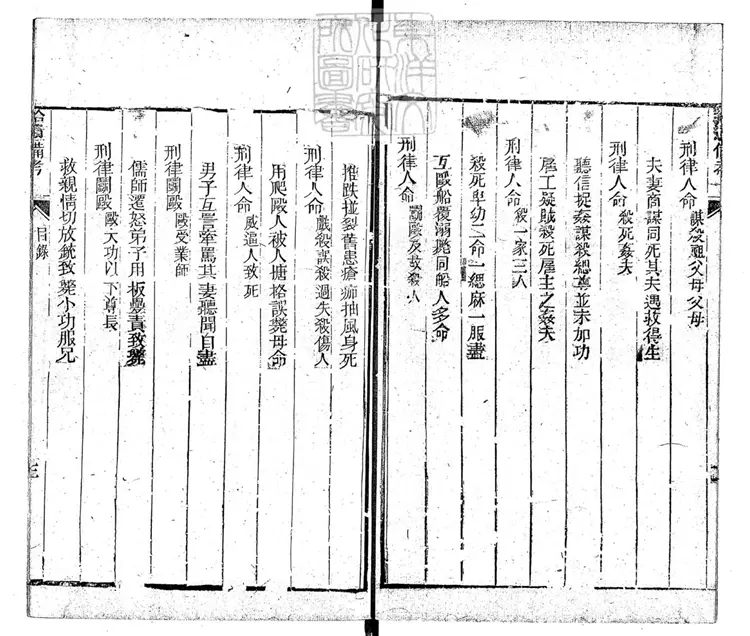 刑律人命 謀殺祖父母父母
夫妻商謀同死其夫遇救得生
刑律人命 殺死姦夫
聽信捉姦謀殺緦尊並未加功
雇工疑賊殺死雇主之姦夫
刑律人命 殺一家三人
殺死卑幼二命一緦麻一服盡
互毆船覆溺斃同船人多命
刑律人命 鬬毆及故殺人
推跌碰裂舊患瘡痂抽風身死
刑律人命 戲殺誤殺過失殺傷人
用爬毆人被人搪格誤斃母命
刑律人命 威逼人致死
男子互詈牽罵其妻聽聞自盡
刑律鬬毆 毆受業師
儒師遷怒弟子用板疊責致斃
刑律鬬毆 毆大功以下尊長
救親情切放銃致斃小功服兄
備考
目錄
三